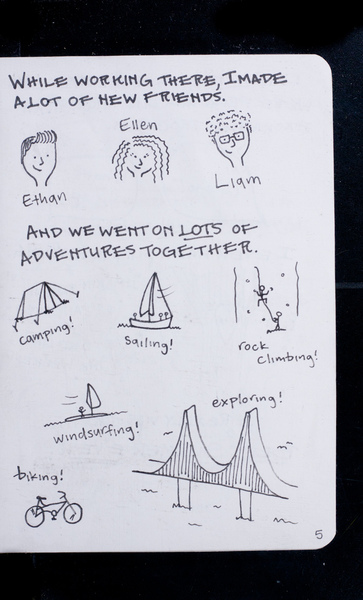 WHILE WORKING THERE, I MADE
A LOT OF NEW FRIENDS.
Ellen
Ethan
Liam
AND WE WENT ON LOTS OF
ADVENTURES TOGETHER.
camping!
sailing!
rock
climbing!
exploring!
windsurfing!
biking!
5